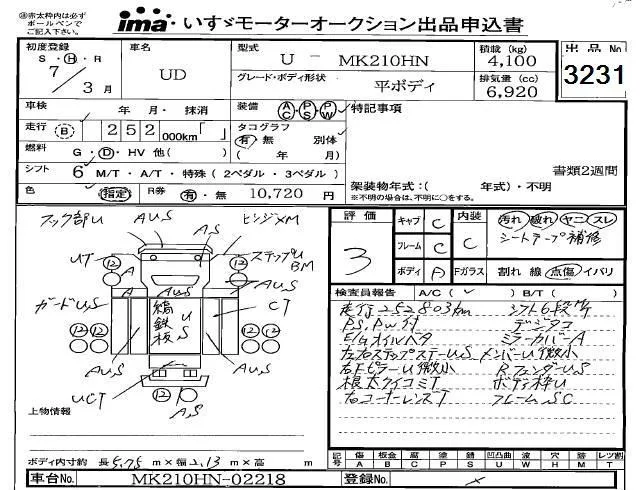 ㊟赤太枠内は必ず
ボールペンで
ご記入下さい。
ima いすゞモーターオークション出品申込書
初度登録 S・H・R 7/3月
車名 UD
型式 U－MK210HN
積載(kg) 4,100
グレード・ボディ形状 平ボディ
排気量(cc) 6,920
出品No 3231
車検 年 月・抹消
装備 AC・PS・PW
特記事項
走行 B 252 000km「 」
タコグラフ 有・無 別体
燃料 G・D・HV 他( )
( 年 月)
シフト 6 M/T・A/T・特殊(2ペダル・3ペダル)
書類2週間
色 指定 R券 有・無 10,720円
架装物年式:( 年式)・不明
※不明の場合は、不明に○をする。
フック部U AUS AS ヒンジXM
UT 12 12 ステップU BM
A A
AUS AUS
ガードU,S 縞鉄板 U S CT
12 12 12 12
AUS AUS
UCT 12 AUS
AS
上物情報
ボディ内寸約 長5.75m×幅2.13m×高 m
評価 3
キャブ C 内装 C
フレーム C
ボディ A Fガラス
汚れ 破れ ヤニ スレ
シートテープ補修
割れ 線 点傷 イバリ
検査員報告 A/C(✓) B/T( )
走行252803km シフト6段MT
PS,PW付 デジタコ
E/Gオイルハタ ミラーカバーA
左右ステップステーUS メンバーU微小
右FピラーU微小 RフェンダーUS
根太クイコミT ボディ枠U
右コーナーレンズT フレームSC
記号 傷 板金 腐 塗 錆 凹凸曲 波 穴 時 レツ割
A B C P S U W H M T
車台No. MK210HN-02218
登録No.